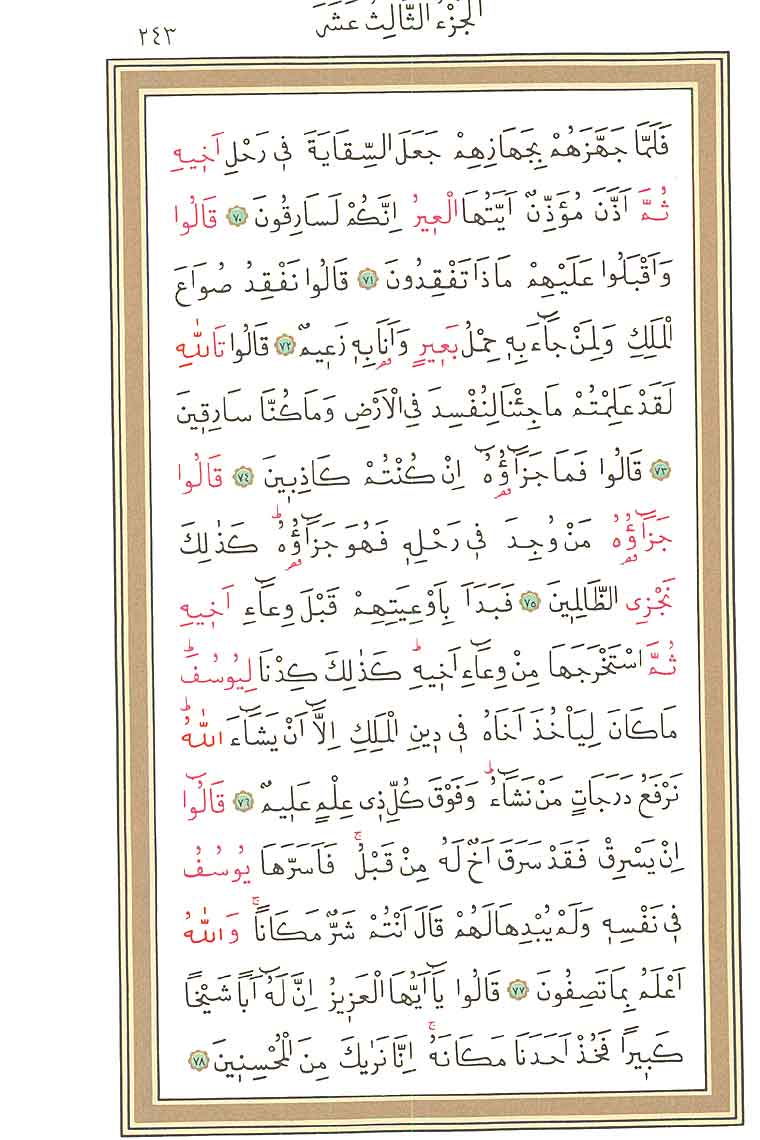 الجزء الثالث عشر
٢٤٣
فَلَمَّا جَهَّزَهُمْ بِجَهَازِهِمْ جَعَلَ السِّقَايَةَ فٖى رَحْلِ اَخٖيهِ
ثُمَّ اَذَّنَ مُؤَذِّنٌ اَيَّتُهَا الْعٖيرُ اِنَّكُمْ لَسَارِقُونَ ٧٠ قَالُوا
وَاَقْبَلُوا عَلَيْهِمْ مَاذَا تَفْقِدُونَ ٧١ قَالُوا نَفْقِدُ صُوَاعَ
الْمَلِكِ وَلِمَنْ جَٓاءَ بِهٖ حِمْلُ بَعٖيرٍ وَاَنَا۬ بِهٖ زَعٖيمٌ ٧٢ قَالُوا تَاللّٰهِ
لَقَدْ عَلِمْتُمْ مَا جِئْنَا لِنُفْسِدَ فِى الْاَرْضِ وَمَا كُنَّا سَارِقٖينَ
٧٣ قَالُوا فَمَا جَزَٓاؤُ۬هُٓ اِنْ كُنْتُمْ كَاذِبٖينَ ٧٤ قَالُوا
جَزَٓاؤُ۬هُ مَنْ وُجِدَ فٖى رَحْلِهٖ فَهُوَ جَزَٓاؤُ۬هُۜ كَذٰلِكَ
نَجْزِى الظَّالِمٖينَ ٧٥ فَبَدَاَ بِاَوْعِيَتِهِمْ قَبْلَ وِعَٓاءِ اَخٖيهِ
ثُمَّ اسْتَخْرَجَهَا مِنْ وِعَٓاءِ اَخٖيهِۜ كَذٰلِكَ كِدْنَا لِيُوسُفَۜ
مَا كَانَ لِيَاْخُذَ اَخَاهُ فٖى دٖينِ الْمَلِكِ اِلَّٓا اَنْ يَشَٓاءَ اللّٰهُۜ
نَرْفَعُ دَرَجَاتٍ مَنْ نَشَٓاءُۜ وَفَوْقَ كُلِّ ذٖى عِلْمٍ عَلٖيمٌ ٧٦ قَالُٓوا
اِنْ يَسْرِقْ فَقَدْ سَرَقَ اَخٌ لَهُ مِنْ قَبْلُۚ فَاَسَرَّهَا يُوسُفُ
فٖى نَفْسِهٖ وَلَمْ يُبْدِهَا لَهُمْ قَالَ اَنْتُمْ شَرٌّ مَكَانًاۚ وَاللّٰهُ
اَعْلَمُ بِمَا تَصِفُونَ ٧٧ قَالُوا يَٓا اَيُّهَا الْعَزٖيزُ اِنَّ لَهُٓ اَبًا شَيْخًا
كَبٖيرًا فَخُذْ اَحَدَنَا مَكَانَهُۚ اِنَّا نَرٰيكَ مِنَ الْمُحْسِنٖينَ ٧٨